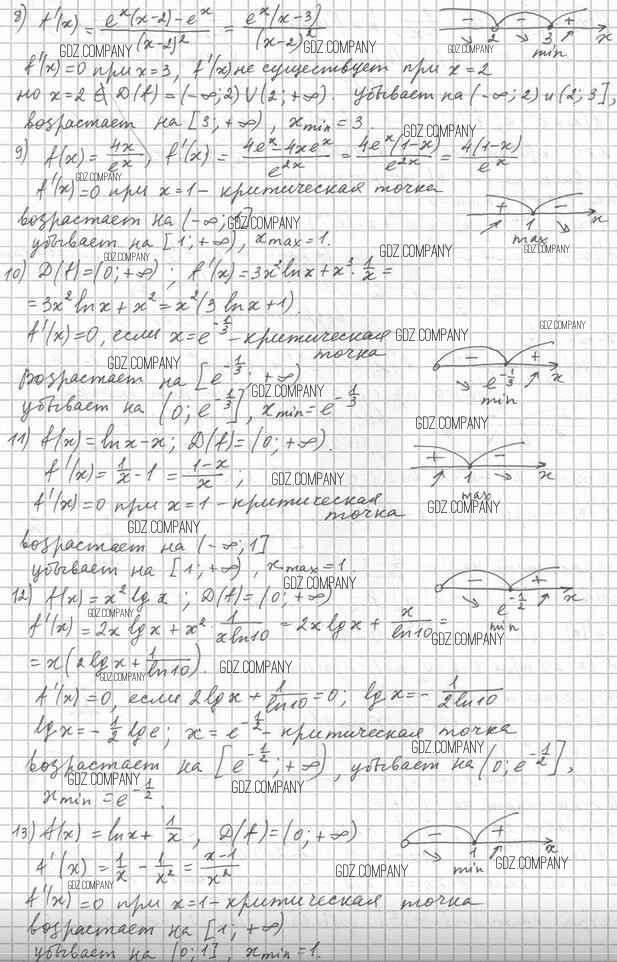 8) f'(x) = (eˣ(x-2) - eˣ)/(x-2)² = eˣ(x-3)/(x-2)²
- 2 - 3 + x
min
GDZ.COMPANY GDZ.COMPANY GDZ.COMPANY
f'(x)=0 при x=3, f'(x) не существует при x=2
но x=2 ∉ D(f) = (-∞;2)∪(2;+∞). убывает на (-∞;2) и (2;3],
возрастает на [3;+∞), x min = 3
GDZ.COMPANY
9) f(x) = 4x/eˣ, f'(x) = (4eˣ - 4xeˣ)/e²ˣ = 4eˣ(1-x)/e²ˣ = 4(1-x)/eˣ
GDZ.COMPANY
f'(x)=0 при x=1 - критическая точка
+ 1 - x
max
возрастает на (-∞;1]
GDZ.COMPANY
убывает на [1;+∞), x max = 1.
GDZ.COMPANY
GDZ.COMPANY GDZ.COMPANY
10) D(f)=(0;+∞); f'(x)=3x² ln x + x³·1/x =
= 3x² ln x + x² = x²(3 ln x + 1).
f'(x)=0, если x = e^(-1/3) - критическая
точка
GDZ.COMPANY GDZ.COMPANY
- e^(-1/3) + x
min
GDZ.COMPANY
возрастает на [e^(-1/3); +∞)
GDZ.COMPANY GDZ.COMPANY
убывает на (0; e^(-1/3)], x min = e^(-1/3)
11) f(x) = ln x - x; D(f) = (0;+∞).
+ 1 - x
max
f'(x) = 1/x - 1 = (1-x)/x;
GDZ.COMPANY
f'(x)=0 при x=1 - критическая
точка
GDZ.COMPANY
GDZ.COMPANY
возрастает на (-∞;1]
убывает на [1;+∞), x max = 1
GDZ.COMPANY
12) f(x) = x² lg x; D(f) = (0;+∞)
- e^(-1/2) + x
min
GDZ.COMPANY
f'(x) = 2x lg x + x²·1/(x ln 10) = 2x lg x + x/ln 10 =
GDZ.COMPANY
= x(2 lg x + 1/ln 10).
GDZ.COMPANY GDZ.COMPANY
f'(x)=0, если 2 lg x + 1/ln 10 = 0; lg x = - 1/(2 ln 10)
lg x = - 1/2 lg e; x = e^(-1/2) - критическая точка
GDZ.COMPANY
возрастает на [e^(-1/2); +∞), убывает на (0; e^(-1/2)],
GDZ.COMPANY GDZ.COMPANY
x min = e^(-1/2).
13) f(x) = ln x + 1/x, D(f) = (0;+∞)
- 1 + x
min
f'(x) = 1/x - 1/x² = (x-1)/x²
GDZ.COMPANY GDZ.COMPANY GDZ.COMPANY
f'(x)=0 при x=1 - критическая точка
возрастает на [1;+∞)
убывает на (0;1], x min = 1.